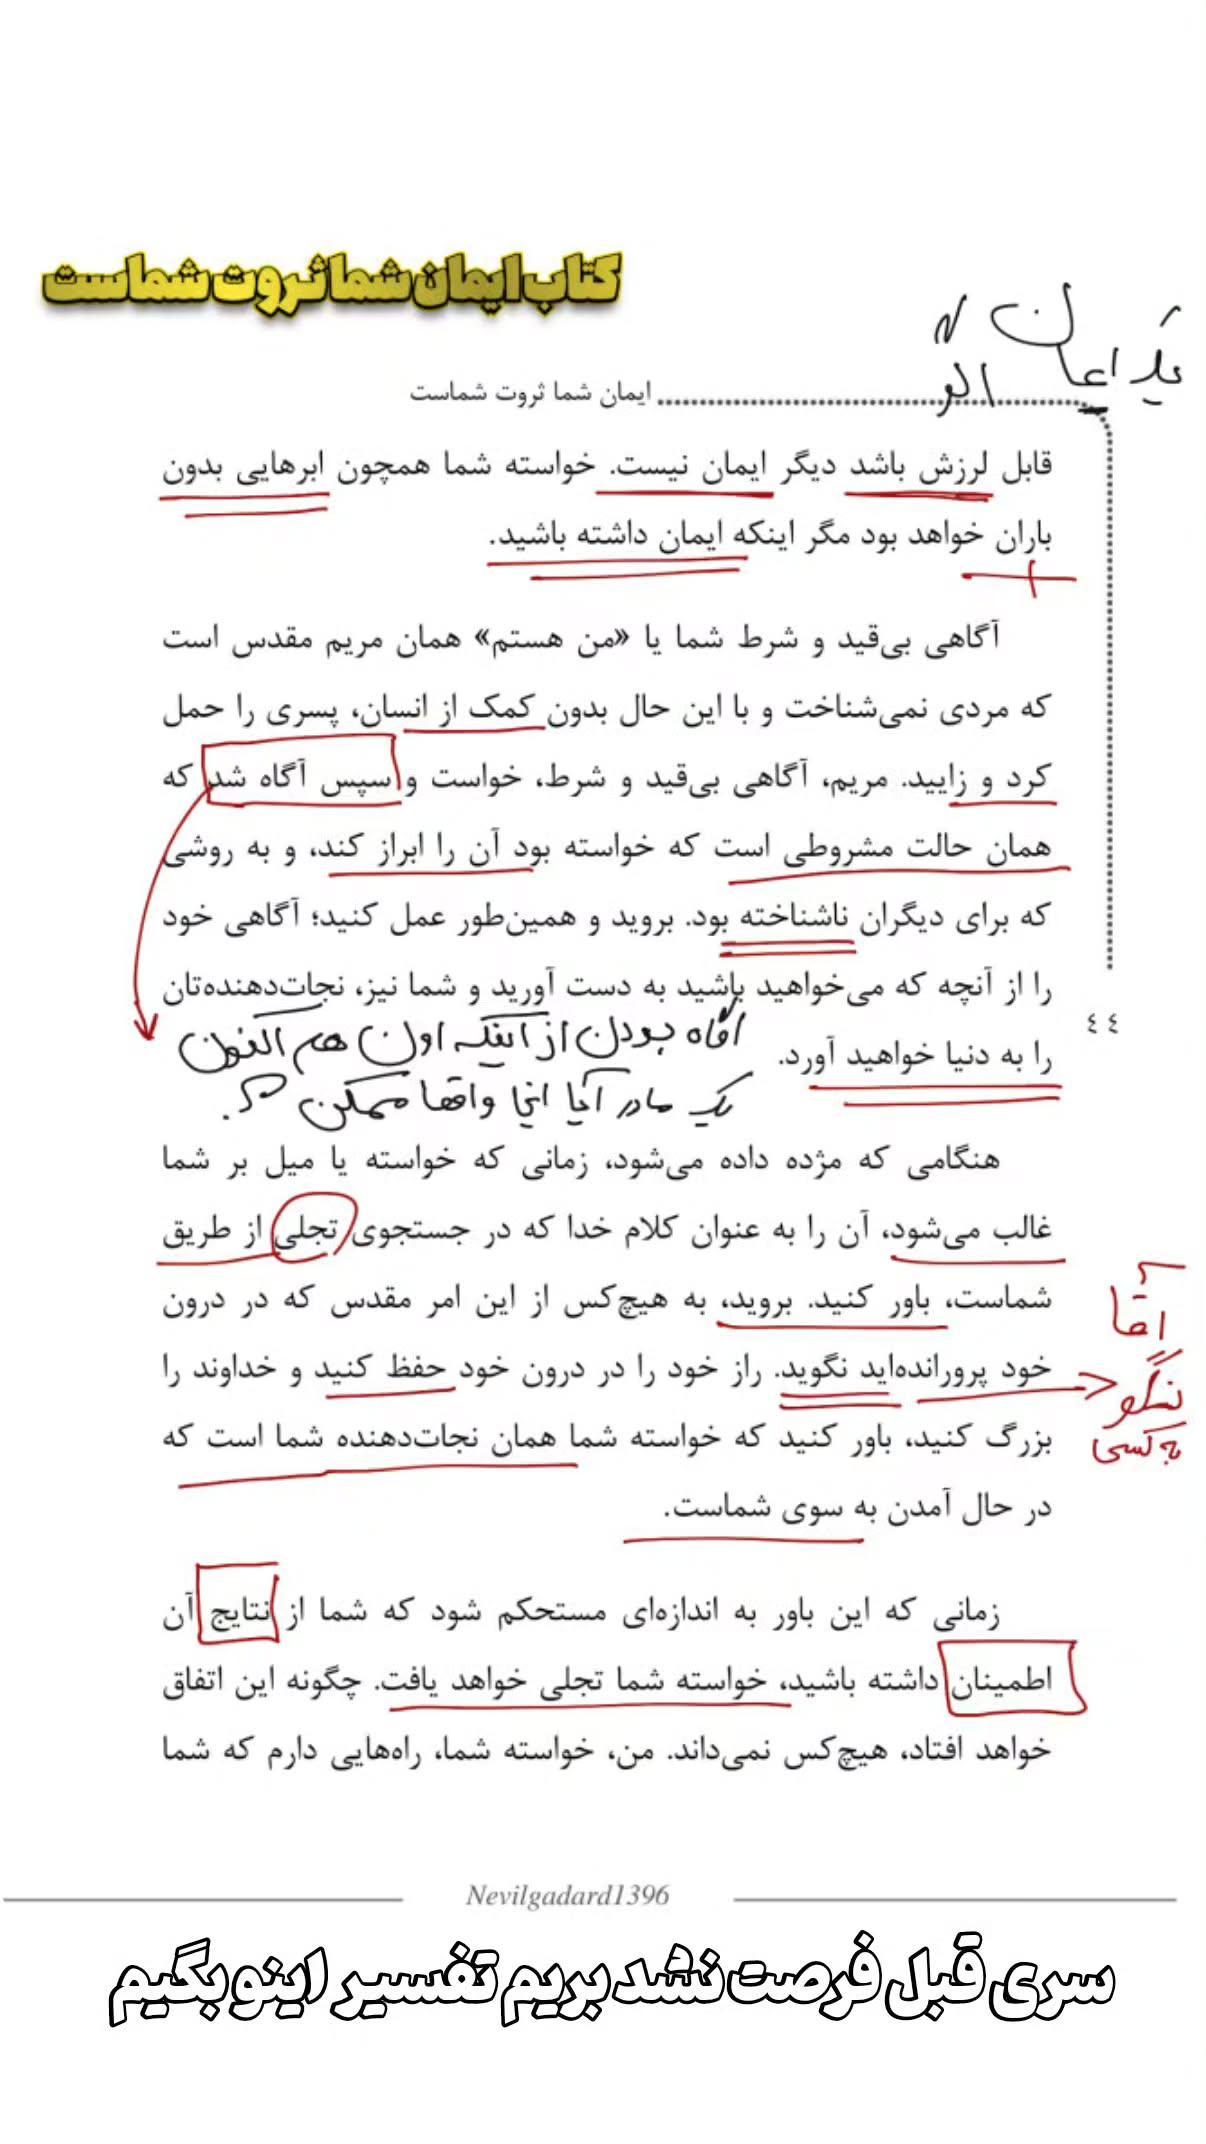 کتاب ایمان شما ثروت شماست
ایمان شما ثروت شماست
قابل لرزش باشد دیگر ایمان نیست. خواسته شما همچون ابرهایی بدون
باران خواهد بود مگر اینکه ایمان داشته باشید.
آگاهی بی‌قید و شرط شما یا «من هستم» همان مریم مقدس است
که مردی نمی‌شناخت و با این حال بدون کمک از انسان، پسری را حمل
کرد و زایید. مریم، آگاهی بی‌قید و شرط، خواست و سپس آگاه شد که
همان حالت مشروطی است که خواسته بود آن را ابراز کند، و به روشی
که برای دیگران ناشناخته بود. بروید و همین‌طور عمل کنید؛ آگاهی خود
را از آنچه که می‌خواهید باشید به دست آورید و شما نیز، نجات‌دهنده‌تان
را به دنیا خواهید آورد.
٤٤
آگاه بودن از اینکه اون هم اکنون
یک مادر آیا اینجا واقعا ممکن
هنگامی که مژده داده می‌شود، زمانی که خواسته یا میل بر شما
غالب می‌شود، آن را به عنوان کلام خدا که در جستجوی تجلی از طریق
شماست، باور کنید. بروید، به هیچ‌کس از این امر مقدس که در درون
خود پرورانده‌اید نگوید. راز خود را در درون خود حفظ کنید و خداوند را
بزرگ کنید، باور کنید که خواسته شما همان نجات‌دهنده شما است که
در حال آمدن به سوی شماست.
آقا
نگو
به کسی
زمانی که این باور به اندازه‌ای مستحکم شود که شما از نتایج آن
اطمینان داشته باشید، خواسته شما تجلی خواهد یافت. چگونه این اتفاق
خواهد افتاد، هیچ‌کس نمی‌داند. من، خواسته شما، راه‌هایی دارم که شما
Nevilgadard1396
سری قبل فرصت نشد بریم تفسیر اینو بگیم